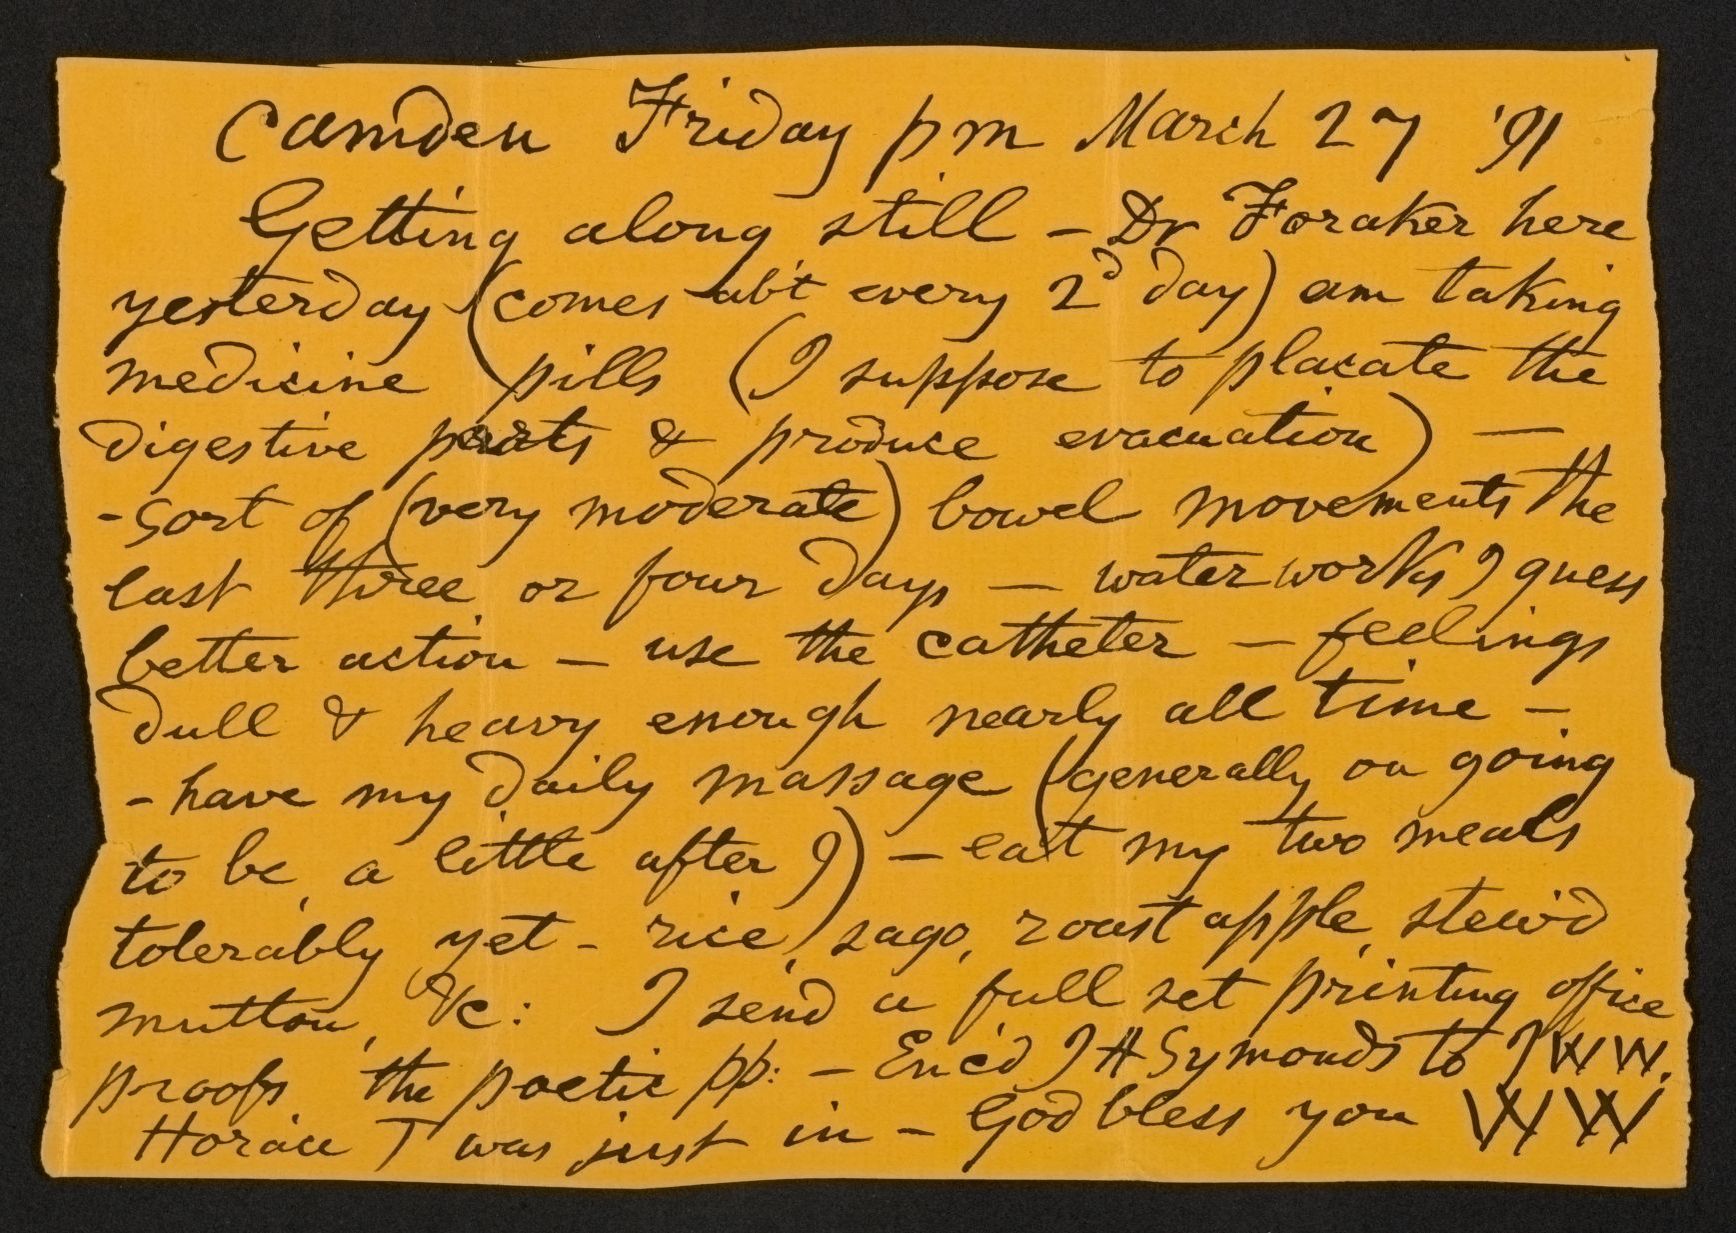 Camden Friday pm March 27 '91
Getting along still – Dr Foraker here
yesterday (comes ab't every 2d day) am taking
medicine pills (I suppose to placate the
digestive parts & produce evacuation) —
- sort of (very moderate) bowel movements the
last three or four days — water works I guess
better action — use the catheter — feelings
dull & heavy enough nearly all time –
– have my daily massage (generally on going
to be, a little after 9) – eat my two meals
tolerably yet – rice, sago, roast apple, stew'd
mutton, &c: I send a full set printing office
proofs the poetic pp: – Enc'd J A Symonds to J W W.
Horace T was just in – God bless you W W